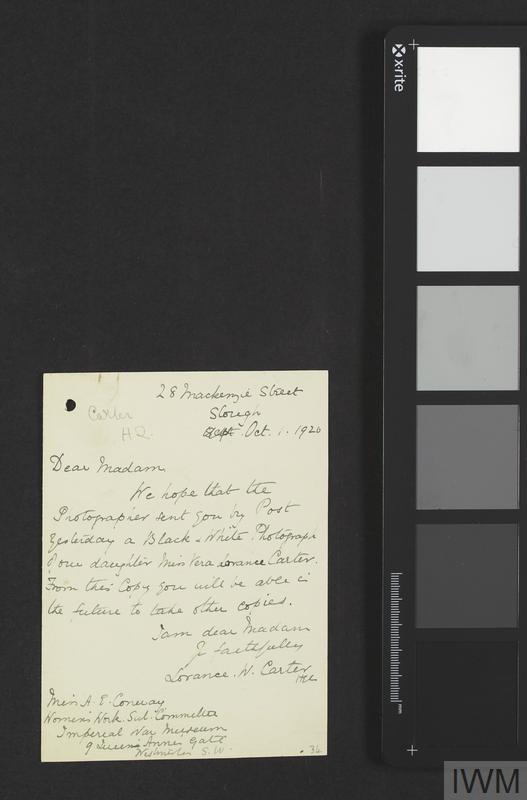 28 Mackenzie Street
Slough
Sept. Oct. 1. 1920
Carter
H.Q.
Dear Madam
We hope that the
Photographer sent you by Post
yesterday a Black & White Photograph
of our daughter Miss Vera Lorance Carter.
From this Copy you will be able in
the future to take other copies.
I am dear Madam
Yr faithfully
Lorance. W. Carter
Miss A. E. Conway
Women's Work Sub. Committee
Imperial War Museum
9 Queen Anne's Gate
Westminster S.W.
34
x-rite
mm
IWM